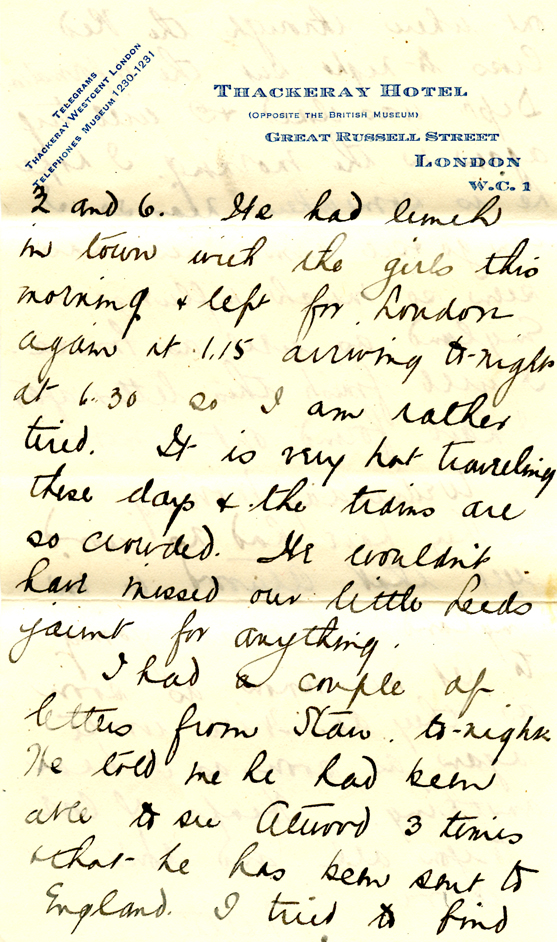 TELEGRAMS
THACKERAY WESTCENT LONDON
TELEPHONES MUSEUM 1230-1231
THACKERAY HOTEL
(OPPOSITE THE BRITISH MUSEUM)
GREAT RUSSELL STREET
LONDON
W.C. 1
2 and 6. We had lunch
in town with the girls this
morning & left for London
again at 1.15 arriving to-night
at 6.30 so I am rather
tired. It is very hot traveling
these days & the trains are
so crowded. We wouldn't
have missed our little Leeds
jaunt for anything.
I had a couple of
letters from Stan. to-night
He told me he had been
able to see Atwood 3 times
& that he has been sent to
England. I tried to find